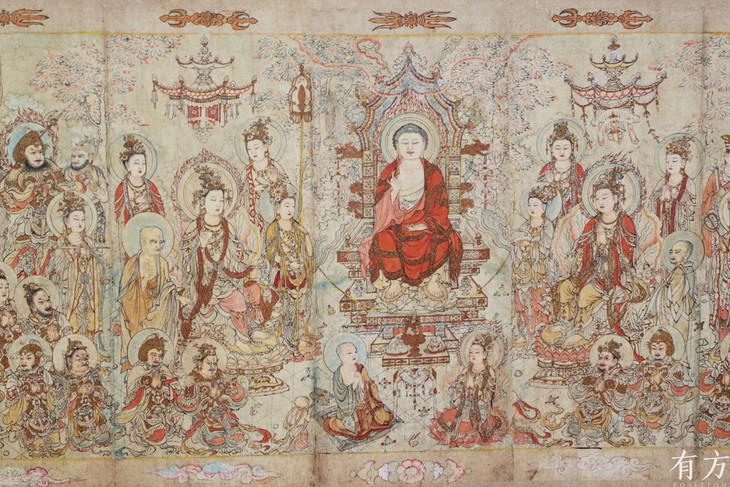 有方
POSITION